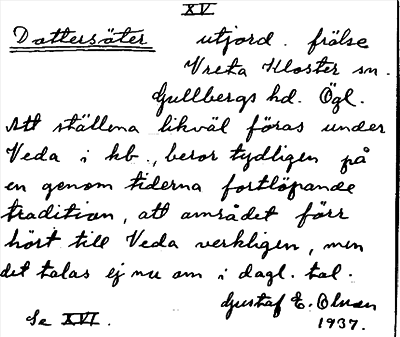 XV
Dattersäter utjord. frälse
Vreta Kloster sn.
Gullbergs hd. Ögl.
Att ställena likväl föras under
Veda i kb., beror tydligen på
en genom tiderna fortlöpande
tradition, att området förr
hört till Veda verkligen, men
det talas ej nu om i dagl. tal.
Gustaf E. Olsson
Se XVI. 1937.